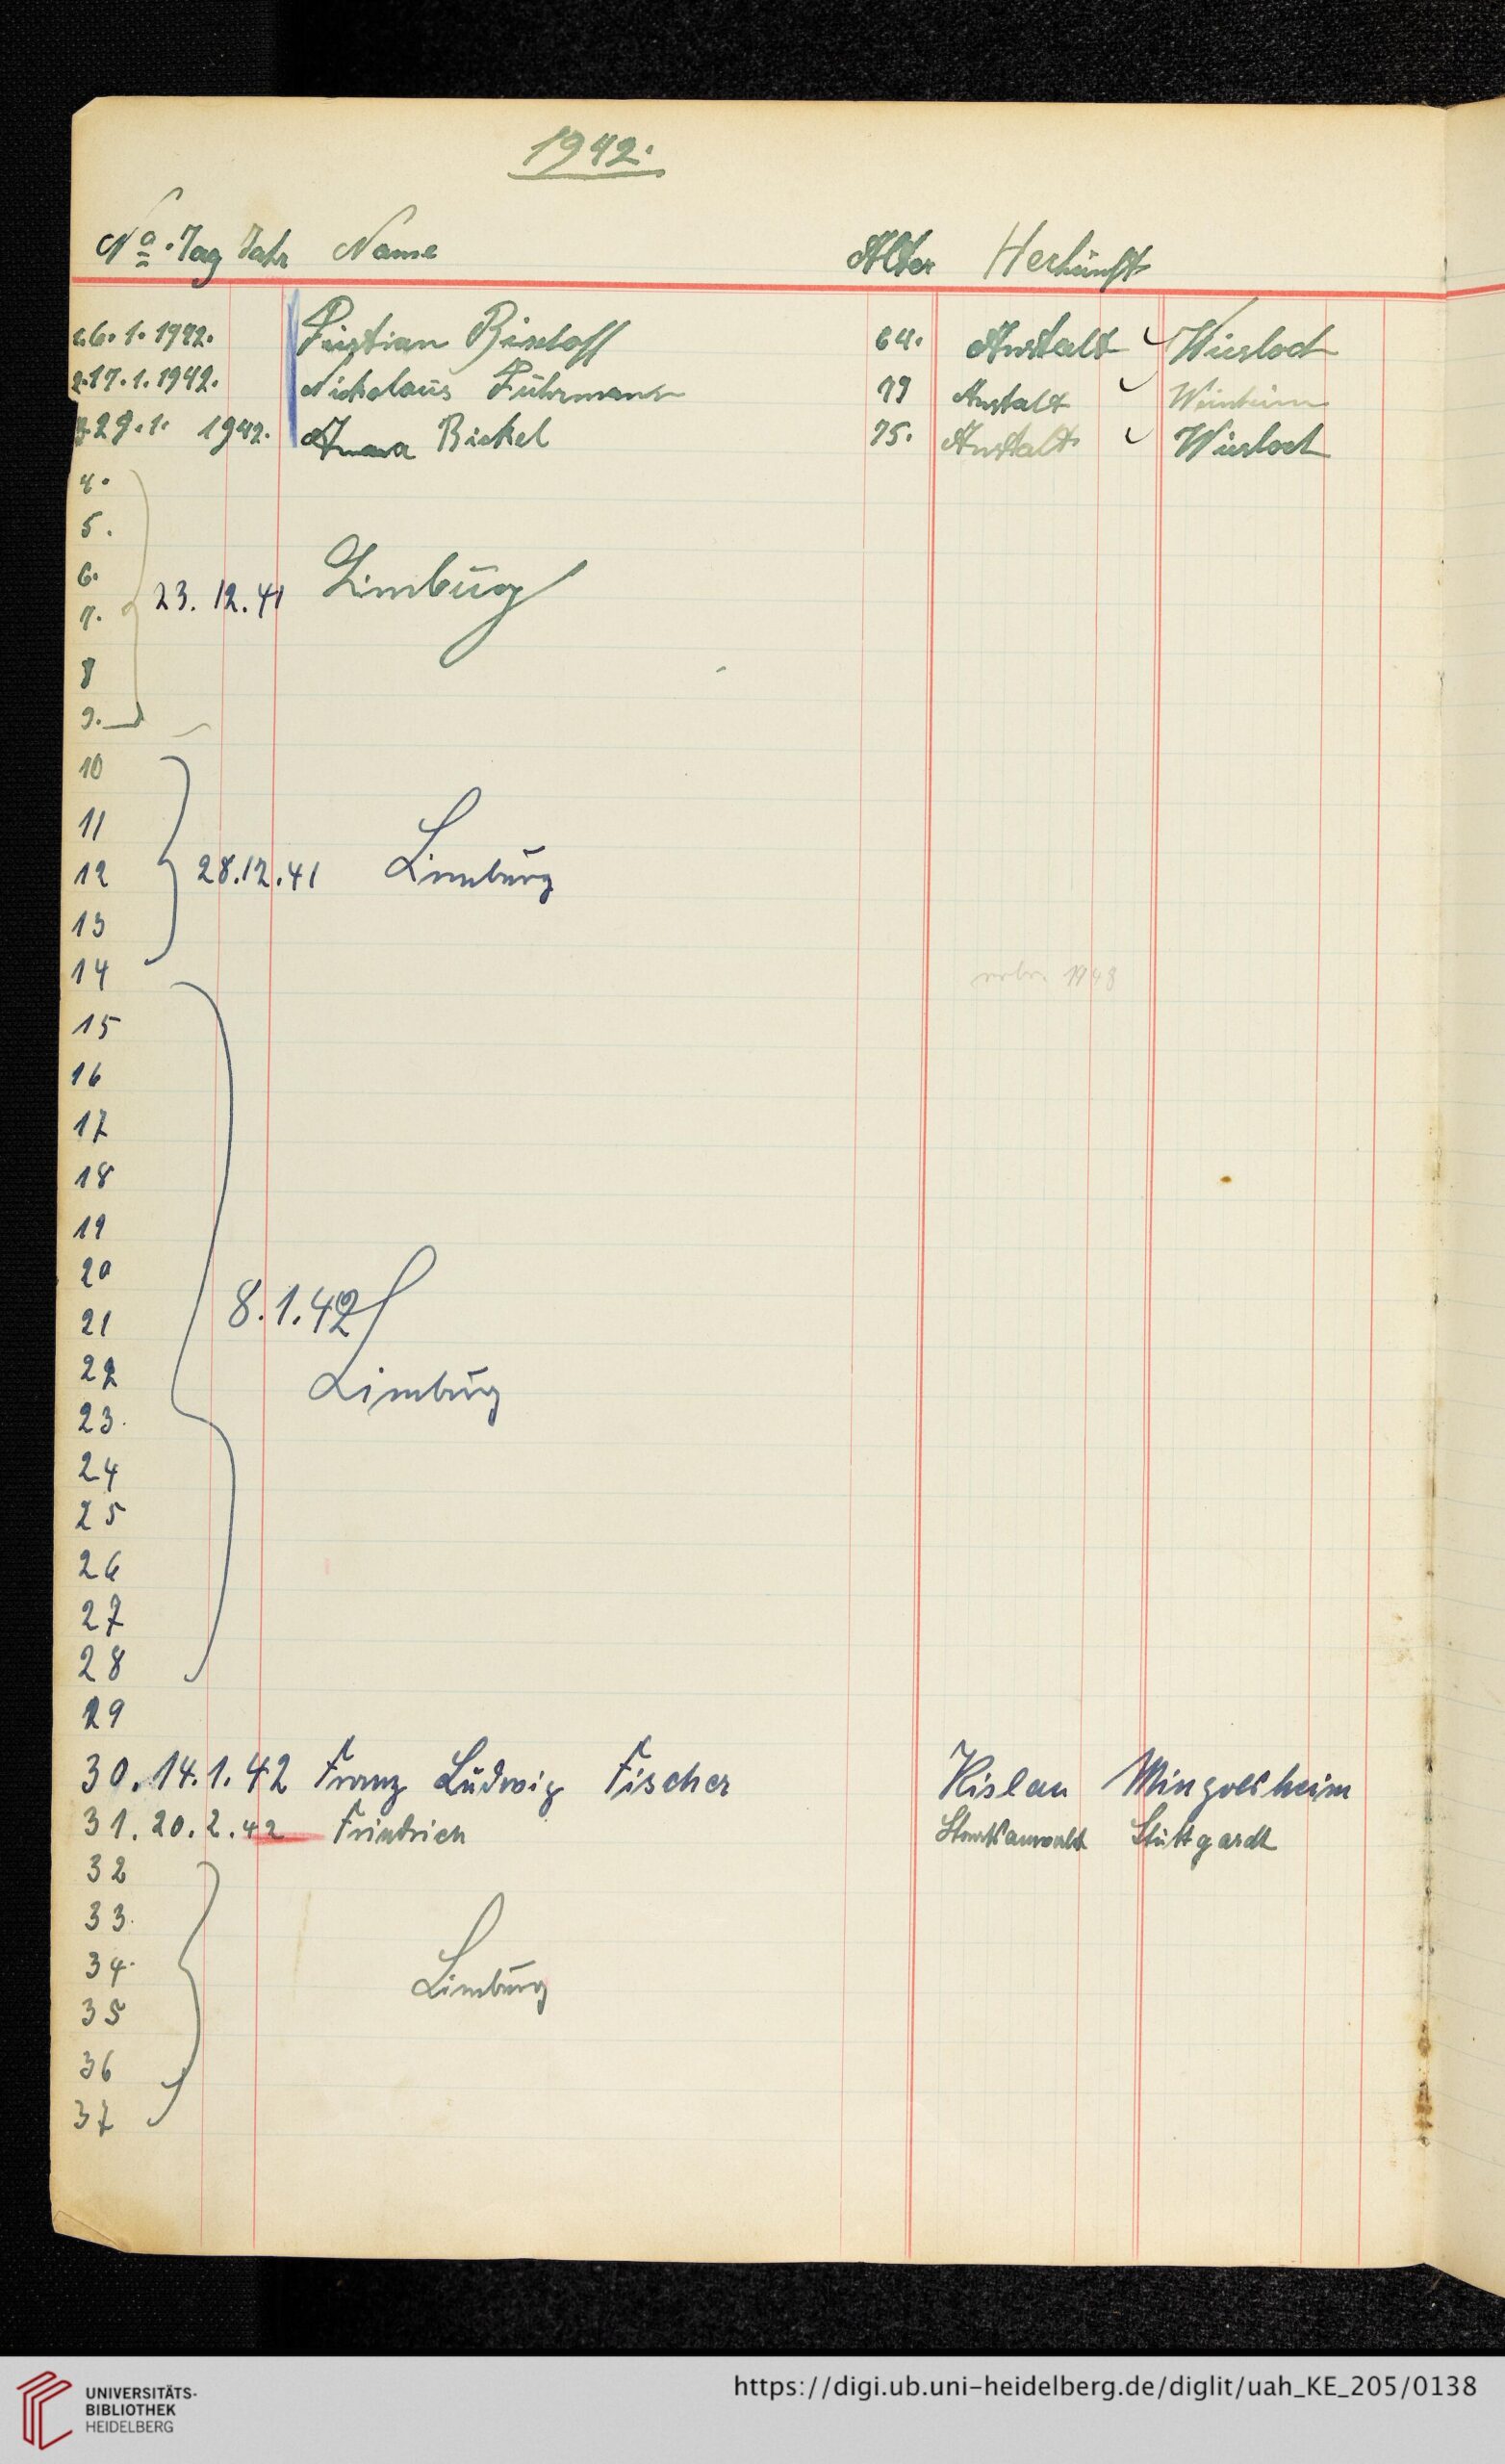 1942.
No. Tag Jahr Name Alter Herkunft
1. 6. 1. 1942. Kristian Bischoff 64. Anstalt Wiesloch
2. 17. 1. 1942. Nickolaus Führmann 79 Anstalt Weinheim
3. 29. 1. 1942. Anna Bickel 75. Anstalt Wiesloch
4.
5.
6.
7. 23. 12. 41 Limburg
8
9.
10
11
12 28.12.41 Limburg
13
14 1943
15
16
17
18
19
20
21 8.1.42
22 Limburg
23.
24
25
26
27
28
29
30. 14.1.42 Franz Ludwig Fischer Kislau Mingolsheim
31. 20.2.42 Friedrich Staatsanwalt Stuttgardt
32
33.
34. Limburg
35
36
37
UNIVERSITÄTS-
BIBLIOTHEK
HEIDELBERG
https://digi.ub.uni-heidelberg.de/diglit/uah_KE_205/0138